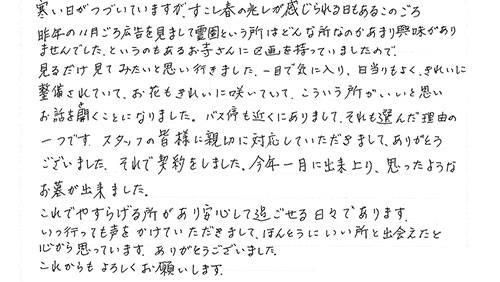 寒い日がつづいていますが、すこし春の兆しが感じられる日もあるこのごろ
昨年の11月ごろ広告を見まして霊園という所はどんな所なのかあまり興味があり
ませんでした、というのもあるお寺さんに区画を持っていましたので、
見るだけ見てみたいと思い行きました、一目で気に入り、日当りもよく、きれいに
整備されていて、お花もきれいに咲いていて、こういう所がいいと思い
お話を聞くことになりました。バス停も近くにありまして、それも選んだ理由の
一つです、スタッフの皆様に親切に対応していただきまして、ありがとう
ございました、それで契約をしました。今年一月に出来上り、思ったような
お墓が出来ました。
これでやすらげる所があり安心して過ごせる日々であります。
いつ行っても声をかけていただきまして、ほんとうにいい所と出会えたと
心から思っています、ありがとうございました。
これからもよろしくお願いします。